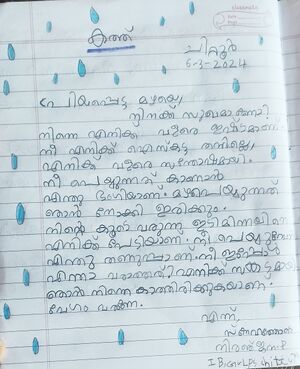 classmate
Date
Page
കത്ത്
ചിറ്റൂർ
6-3-2024
പ്രിയപ്പെട്ട മഴയെ,
നിനക്ക് സുഖമാണോ?
നിന്നെ എനിക്ക് വളരെ ഇഷ്ടമാണ്.
നീ എനിക്ക് ഐസ്കട്ട തന്നില്ലെ,
എനിക്ക് വളരെ സന്തോഷമായി.
നീ പെയ്യുന്നത് കാണാൻ
എന്തു ഭംഗിയാണ്. മഴപെയ്യുന്നത്
ഞാൻ നോക്കി ഇരിക്കും.
നിന്റെ കൂടെ വരുന്ന ഇടിമിന്നലിനെ
എനിക്ക് പേടിയാണ്. നീ പെയ്യുമ്പോ
എന്തു തണുപ്പാണ്. നീ ഇപ്പോൾ
എന്താ വരാത്തത്? എനിക്ക് സങ്കടമായി
ഞാൻ നിന്നെ കാത്തിരിക്കുകയാണ്.
വേഗം വരണം.
എന്ന്,
സ്നേഹത്തോടെ
നിരഞ്ജന.P